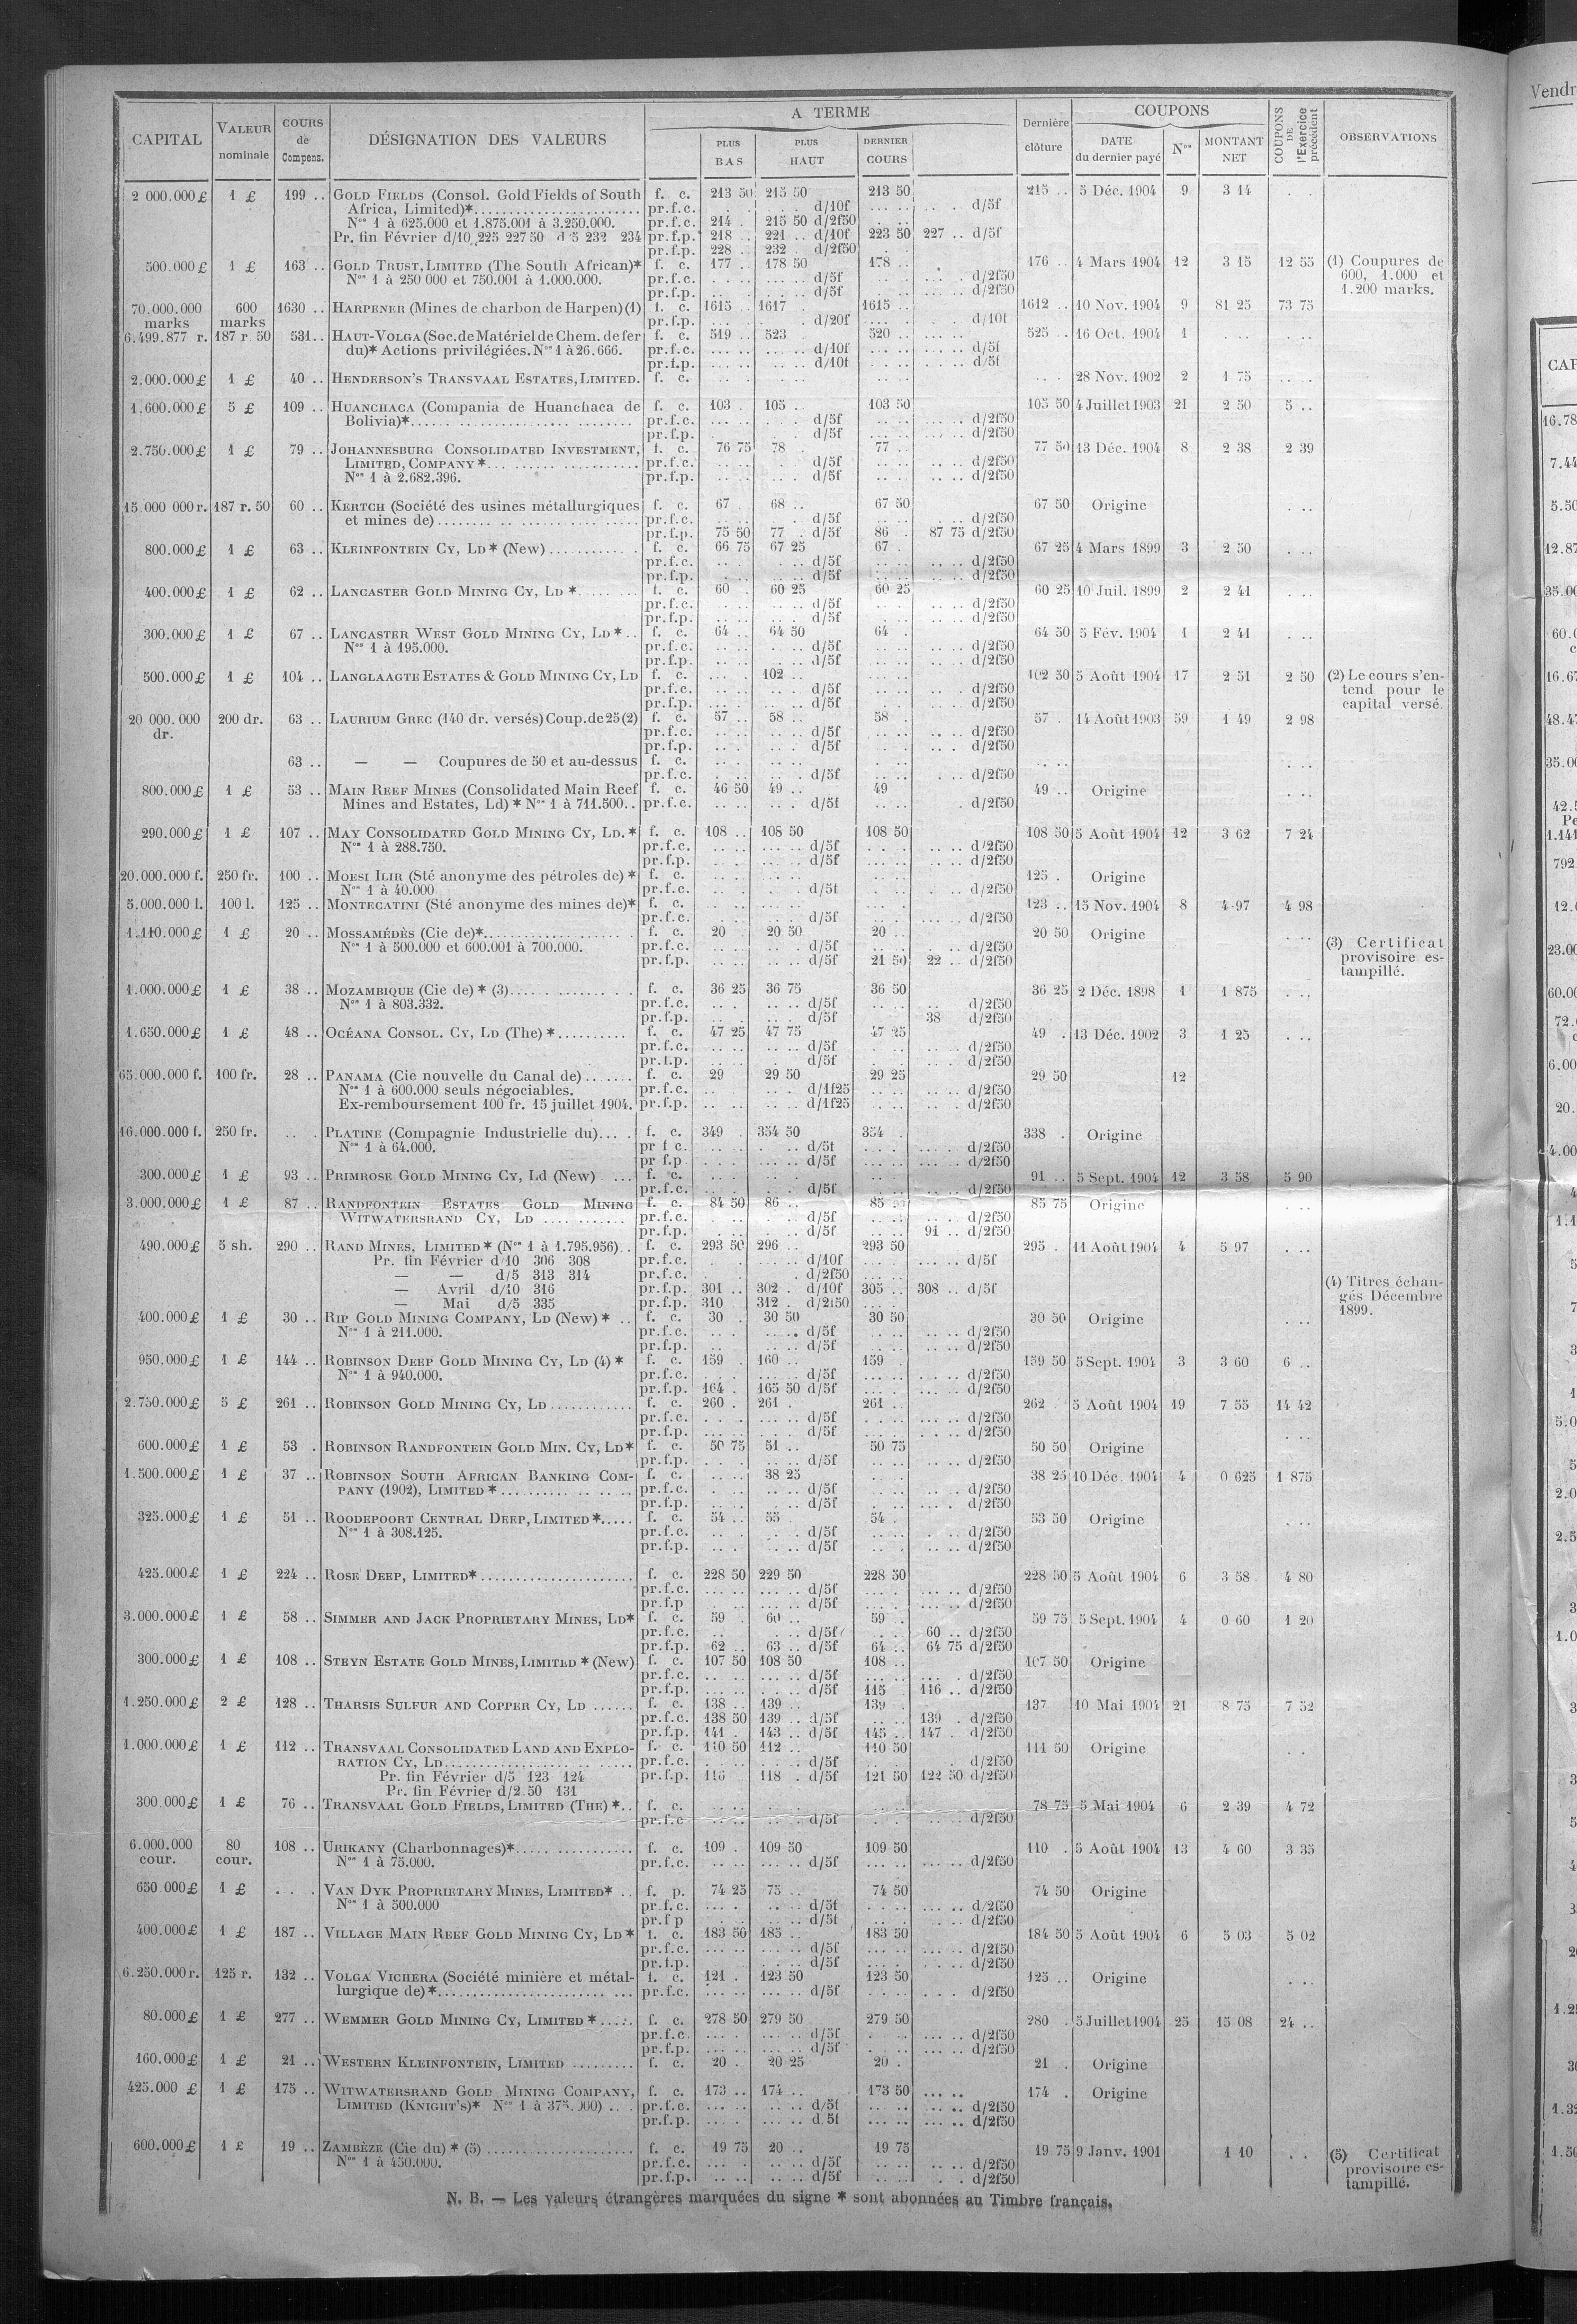 CAPITAL | VALEUR nominale | COURS de Compens. | DÉSIGNATION DES VALEURS | A TERME | PLUS BAS | PLUS HAUT | DERNIER COURS | Dernière clôture | COUPONS | DATE du dernier payé | Nos | MONTANT NET | COUPONS DE l'Exercice précédent | OBSERVATIONS
2 000.000 £ 1 £ 199 .. GOLD FIELDS (Consol. Gold Fields of South f. c. 213 50 215 50 213 50 215 .. 5 Déc. 1904 9 3 14
Africa, Limited)* pr.f.c. d/10f d/5f
Nos 1 à 625.000 et 1.875.001 à 3.250.000. pr.f.c. 214 . 215 50 d/2f50
Pr. fin Février d/10 225 227 50 d/5 232 234 pr.f.p. 218 .. 221 .. d/10f 223 50 227 .. d/5f
pr.f.p. 228 .. 232 . d/2f50
500.000 £ 1 £ 163 .. GOLD TRUST, LIMITED (The South African)* f. c. 177 .. 178 50 178 .. 176 .. 4 Mars 1904 12 3 15 12 55 (1) Coupures de
Nos 1 à 250 000 et 750.001 à 1.000.000. pr.f.c. d/5f d/2f50 600, 1.000 et
pr.f.p. d/5f d/2f50 1.200 marks.
70.000.000 600 1630 .. HARPENER (Mines de charbon de Harpen) (1) f. c. 1615 1617 . 1615 .. 1612 .. 10 Nov. 1904 9 81 25 73 75
marks marks pr.f.p. d/20f d/10f
6.499.877 r. 187 r. 50 531 .. HAUT-VOLGA (Soc. de Matériel de Chem. de fer f. c. 519 .. 523 520 .. 525 . 16 Oct. 1904 1
du)* Actions privilégiées. Nos 1 à 26.666. pr.f.c. d/10f d/5f
pr.f.p. d/10f d/5f
2.000.000 £ 1 £ 40 .. HENDERSON'S TRANSVAAL ESTATES, LIMITED. f. c. 28 Nov. 1902 2 1 75
1.600.000 £ 5 £ 109 .. HUANCHACA (Compania de Huanchaca de f. c. 103 . 105 . 103 50 105 50 4 Juillet 1903 21 2 50 5 ..
Bolivia)* pr.f.c. d/5f d/2f50
pr.f.p. d/5f d/2f50
2.750.000 £ 1 £ 79 .. JOHANNESBURG CONSOLIDATED INVESTMENT, f. c. 76 75 78 . 77 .. 77 50 13 Déc. 1904 8 2 38 2 39
LIMITED, COMPANY* pr.f.c. d/5f d/2f50
Nos 1 à 2.682.396. pr.f.p. d/5f d/2f50
15.000 000 r. 187 r. 50 60 .. KERTCH (Société des usines métallurgiques f. c. 67 68 .. 67 50 67 50 Origine
et mines de) pr.f.c. d/5f d/2f50
pr.f.p. 75 50 77 . d/5f 86 . 87 75 d/2f50
800.000 £ 1 £ 63 .. KLEINFONTEIN CY, LD* (New) f. c. 66 75 67 25 67 . 67 25 4 Mars 1899 3 2 50
pr.f.c. d/5f d/2f50
pr.f.p. d/5f d/2f50
400.000 £ 1 £ 62 .. LANCASTER GOLD MINING CY, LD * f. c. 60 . 60 25 60 25 60 25 10 Juil. 1899 2 2 41
pr.f.c. d/5f d/2f50
pr.f.p. d/5f d/2f50
300.000 £ 1 £ 67 .. LANCASTER WEST GOLD MINING CY, LD * f. c. 64 .. 64 50 64 64 50 5 Fév. 1904 1 2 41
Nos 1 à 195.000. pr.f.c. d/5f d/2f50
pr.f.p. d/5f d/2f50
500.000 £ 1 £ 104 .. LANGLAAGTE ESTATES & GOLD MINING CY, LD f. c. 102 .. 102 50 5 Août 1904 17 2 51 2 50 (2) Le cours s'en-
pr.f.c. d/5f d/2f50 tend pour le
pr.f.p. d/5f d/2f50 capital versé.
20 000.000 200 dr. 63 .. LAURIUM GREC (140 dr. versés) Coup. de 25 (2) f. c. 57 .. 58 .. 58 . 57 . 14 Août 1903 59 1 49 2 98
dr. pr.f.c. d/5f d/2f50
pr.f.p. d/5f d/2f50
63 .. — — Coupures de 50 et au-dessus f. c.
pr.f.c. d/5f d/2f50
800.000 £ 1 £ 53 .. MAIN REEF MINES (Consolidated Main Reef f. c. 46 50 49 .. 49 49 .. Origine
Mines and Estates, Ld) * Nos 1 à 711.500.. pr.f.c. d/5f d/2f50
290.000 £ 1 £ 107 .. MAY CONSOLIDATED GOLD MINING CY, LD. * f. c. 108 .. 108 50 108 50 108 50 5 Août 1904 12 3 62 7 24
Nos 1 à 288.750. pr.f.c. d/5f d/2f50
pr.f.p. d/5f d/2f50
20.000.000 f. 250 fr. 100 .. MOESI ILIR (Sté anonyme des pétroles de) * f. c. 125 . Origine
Nos 1 à 40.000 pr.f.c. d/5f d/2f50
5.000.000 l. 100 l. 125 .. MONTECATINI (Sté anonyme des mines de)* f. c. 123 .. 15 Nov. 1904 8 4 97 4 98
pr.f.c. d/5f d/2f50
1.110.000 £ 1 £ 20 .. MOSSAMÉDÈS (Cie de)* f. c. 20 20 50 20 .. 20 50 Origine
Nos 1 à 500.000 et 600.001 à 700.000. pr.f.c. d/5f d/2f50 (3) Certificat
pr.f.p. d/5f 21 50 22 .. d/2f50 provisoire es-
tampillé.
1.000.000 £ 1 £ 38 .. MOZAMBIQUE (Cie de) * (3) f. c. 36 25 36 75 36 50 36 25 2 Déc. 1898 1 1 875
Nos 1 à 803.332. pr.f.c. d/5f d/2f50
pr.f.p. d/5f 38 d/2f50
1.650.000 £ 1 £ 48 .. OCÉANA CONSOL. CY, LD (The) * f. c. 47 25 47 75 47 25 49 . 13 Déc. 1902 3 1 25
pr.f.c. d/5f d/2f50
pr.f.p. d/5f d/2f50
65.000.000 f. 100 fr. 28 .. PANAMA (Cie nouvelle du Canal de) f. c. 29 29 50 29 25 29 50 12
Nos 1 à 600.000 seuls négociables. pr.f.c. d/1f25 d/2f50
Ex-remboursement 100 fr. 15 juillet 1904. pr.f.p. d/1f25 d/2f50
16.000.000 f. 250 fr. PLATINE (Compagnie Industrielle du) f. c. 349 . 354 50 354 . 338 . Origine
Nos 1 à 64.000. pr f c. d/5f d/2f50
pr f.p d/5f d/2f50
300.000 £ 1 £ 93 .. PRIMROSE GOLD MINING CY, Ld (New) f. c. 91 .. 5 Sept. 1904 12 3 58 5 90
pr.f.c. d/5f d/2f50
3.000.000 £ 1 £ 87 .. RANDFONTEIN ESTATES GOLD MINING f. c. 84 50 86 .. 85 85 75 Origine
WITWATERSRAND CY, LD pr.f.c. d/5f d/2f50
pr.f.p. 91 .. d/5f 91 .. d/2f50
490.000 £ 5 sh. 290 .. RAND MINES, LIMITED * (Nos 1 à 1.795.956) f. c. 293 50 296 .. 293 50 295 . 11 Août 1904 4 5 97
Pr. fin Février d/10 306 308 pr.f.c. d/10f d/5f
— — d/5 313 314 pr.f.c. d/2f50 (4) Titres échan-
— Avril d/10 316 pr.f.p. 301 .. 302 . d/10f 305 .. 308 .. d/5f gés Décembre
— Mai d/5 335 pr.f.p. 310 312 . d/2f50 1899.
400.000 £ 1 £ 30 .. RIP GOLD MINING COMPANY, LD (New) * f. c. 30 . 30 50 30 50 30 50 Origine
Nos 1 à 211.000. pr.f.c. d/5f d/2f50
pr.f.p. d/5f d/2f50
950.000 £ 1 £ 144 .. ROBINSON DEEP GOLD MINING CY, LD (4) * f. c. 159 . 160 .. 159 . 159 50 5 Sept. 1904 3 3 60 6 ..
Nos 1 à 940.000. pr.f.c. d/5f d/2f50
pr.f.p. 164 . 165 50 d/5f d/2f50
2.750.000 £ 5 £ 261 .. ROBINSON GOLD MINING CY, LD f. c. 260 . 261 . 261 .. 262 5 Août 1904 19 7 55 14 42
pr.f.c. d/5f d/2f50
pr.f.p. d/5f d/2f50
600.000 £ 1 £ 53 . ROBINSON RANDFONTEIN GOLD MIN. CY, LD* f. c. 50 75 51 .. 50 75 50 50 Origine
pr.f.p. d/5f d/2f50
1.500.000 £ 1 £ 37 .. ROBINSON SOUTH AFRICAN BANKING COM- f. c. 38 25 38 25 10 Déc. 1904 4 0 625 1 875
PANY (1902), LIMITED * pr.f.c. d/5f d/2f50
pr.f.p. d/5f d/2f50
325.000 £ 1 £ 51 .. ROODEPOORT CENTRAL DEEP, LIMITED * f. c. 54 .. 55 . 54 . 53 50 Origine
Nos 1 à 308.125. pr.f.c. d/5f d/2f50
pr.f.p. d/5f d/2f50
425.000 £ 1 £ 224 .. ROSE DEEP, LIMITED* f. c. 228 50 229 50 228 50 228 50 5 Août 1904 6 3 58 4 80
pr.f.c. d/5f d/2f50
pr.f.p d/5f d/2f50
3.000.000 £ 1 £ 58 .. SIMMER AND JACK PROPRIETARY MINES, LD* f. c. 59 . 60 .. 59 . 59 75 5 Sept. 1904 4 0 60 1 20
pr.f.c. d/5f 60 .. d/2f50
pr.f.p. 62 .. 63 .. d/5f 64 .. 64 75 d/2f50
300.000 £ 1 £ 108 .. STEYN ESTATE GOLD MINES, LIMITED * (New) f. c. 107 50 108 50 108 .. 107 50 Origine
pr.f.c. d/5f d/2f50
pr.f.p. d/5f 115 116 .. d/2f50
1.250.000 £ 2 £ 128 .. THARSIS SULFUR AND COPPER CY, LD f. c. 138 .. 139 .. 139 . 137 10 Mai 1904 21 8 75 7 52
pr.f.c. 138 50 139 .. d/5f 139 . d/2f50
pr.f.p. 141 . 143 .. d/5f 145 .. 147 . d/2f50
1.000.000 £ 1 £ 112 .. TRANSVAAL CONSOLIDATED LAND AND EXPLO- f. c. 110 50 112 .. 110 50 111 50 Origine
RATION CY, LD pr.f.c. d/5f d/2f50
Pr. fin Février d/5 123 124 pr.f.p. 116 118 . d/5f 121 50 122 50 d/2f50
Pr. fin Février d/2.50 131
300.000 £ 1 £ 76 .. TRANSVAAL GOLD FIELDS, LIMITED (THE) * f. c. 78 75 5 Mai 1904 6 2 39 4 72
pr.f.c d/5f d/2f50
6.000.000 80 108 .. URIKANY (Charbonnages)* f. c. 109 . 109 50 109 50 110 . 5 Août 1904 13 4 60 3 35
cour. cour. Nos 1 à 75.000. pr.f.c. d/5f d/2f50
650 000 £ 1 £ VAN DYK PROPRIETARY MINES, LIMITED* f. p. 74 25 75 . 74 50 74 50 Origine
Nos 1 à 500.000 pr.f.c. d/5f d/2f50
pr.f p d/5f d/2f50
400.000 £ 1 £ 187 .. VILLAGE MAIN REEF GOLD MINING CY, LD * f. c. 183 50 185 .. 183 50 184 50 5 Août 1904 6 5 03 5 02
pr.f.c. d/5f d/2f50
pr.f.p. d/5f d/2f50
6.250.000 r. 125 r. 132 .. VOLGA VICHERA (Société minière et métal- f. c. 121 . 123 50 123 50 125 .. Origine
lurgique de) * pr.f.c. d/5f d/2f50
80.000 £ 1 £ 277 .. WEMMER GOLD MINING CY, LIMITED * f. c. 278 50 279 50 279 50 280 . 5 Juillet 1904 25 15 08 24 ..
pr.f.c. d/5f d/2f50
pr.f.p. d/5f d/2f50
160.000 £ 1 £ 21 .. WESTERN KLEINFONTEIN, LIMITED f. c. 20 . 20 25 20 . 21 . Origine
425.000 £ 1 £ 175 .. WITWATERSRAND GOLD MINING COMPANY, f. c. 173 .. 174 .. 173 50 174 . Origine
LIMITED (KNIGHT'S)* Nos 1 à 375.000) pr.f.c. d/5f d/2f50
pr.f.p. d/5f d/2f50
600.000 £ 1 £ 19 .. ZAMBÈZE (Cie du) * (5) f. c. 19 75 20 .. 19 75 19 75 9 Janv. 1901 1 10 (5) Certificat
Nos 1 à 450.000. pr.f.c. d/5f d/2f50 provisoire es-
pr.f.p. d/5f d/2f50 tampillé.
N. B. — Les valeurs étrangères marquées du signe * sont abonnées au Timbre français.
Vendr
CAP